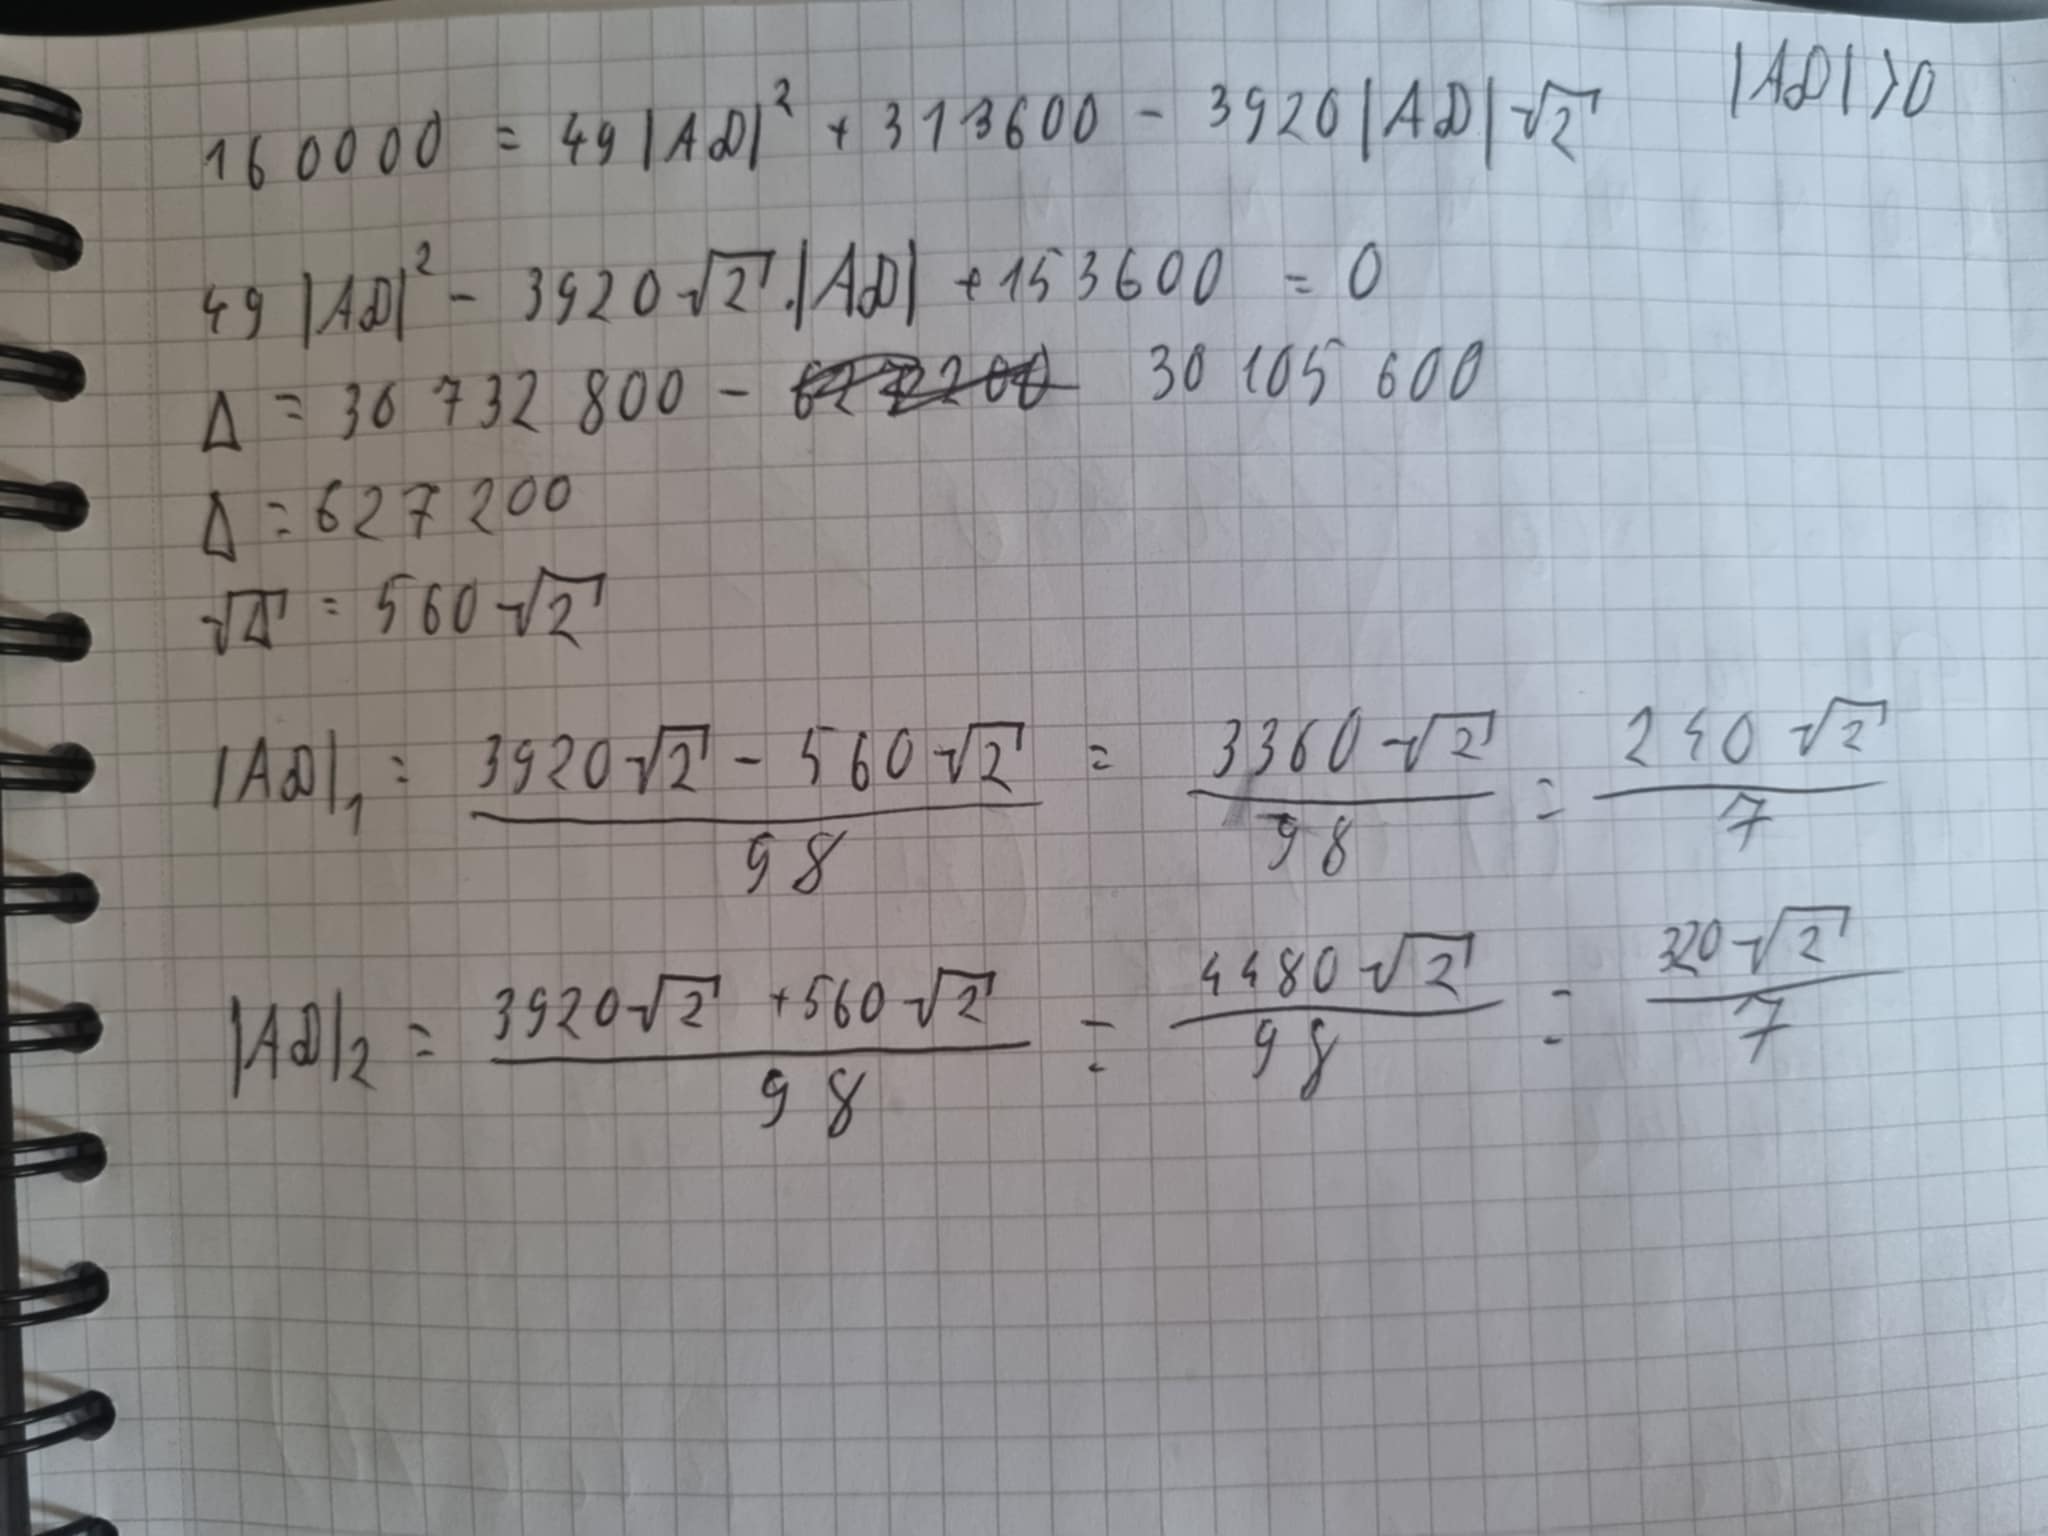 160000 = 49|AD|² + 313600 - 3920|AD|√2 |AD|>0
49|AD|² - 3920√2·|AD| + 153600 = 0
Δ = 30 732 800 - 30 105 600
Δ = 627 200
√Δ = 560√2
|AD|₁ = (3920√2 - 560√2)/98 = 3360√2/98 = 240√2/7
|AD|₂ = (3920√2 + 560√2)/98 = 4480√2/98 = 320√2/7